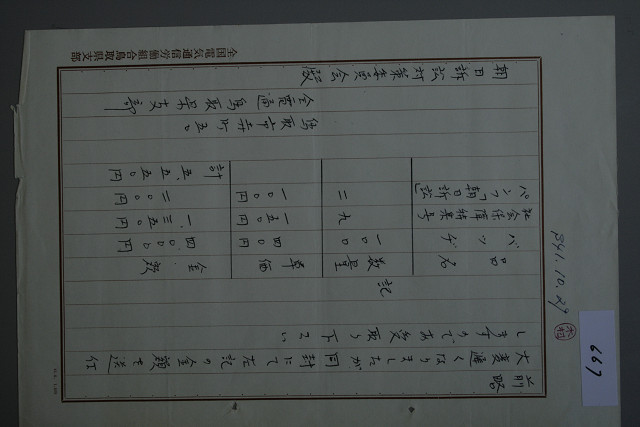 667
S41.10.27
前略
大変遅くなりましたが同封にて左記の金額を送付
しますのでお受取り下さい
記
品名 数量 単価 金額
バッヂ 一〇〇 四〇円 四.〇〇〇円
社会保障特集号 九 一五〇円 一.三五〇円
パンフ「朝日訴訟」 二 一〇〇円 二〇〇円
計 五.五五〇円
鳥取市幸町五〇
全電通鳥取県支部
朝日訴訟対策委員会殿
全国電気通信労働組合鳥取県支部